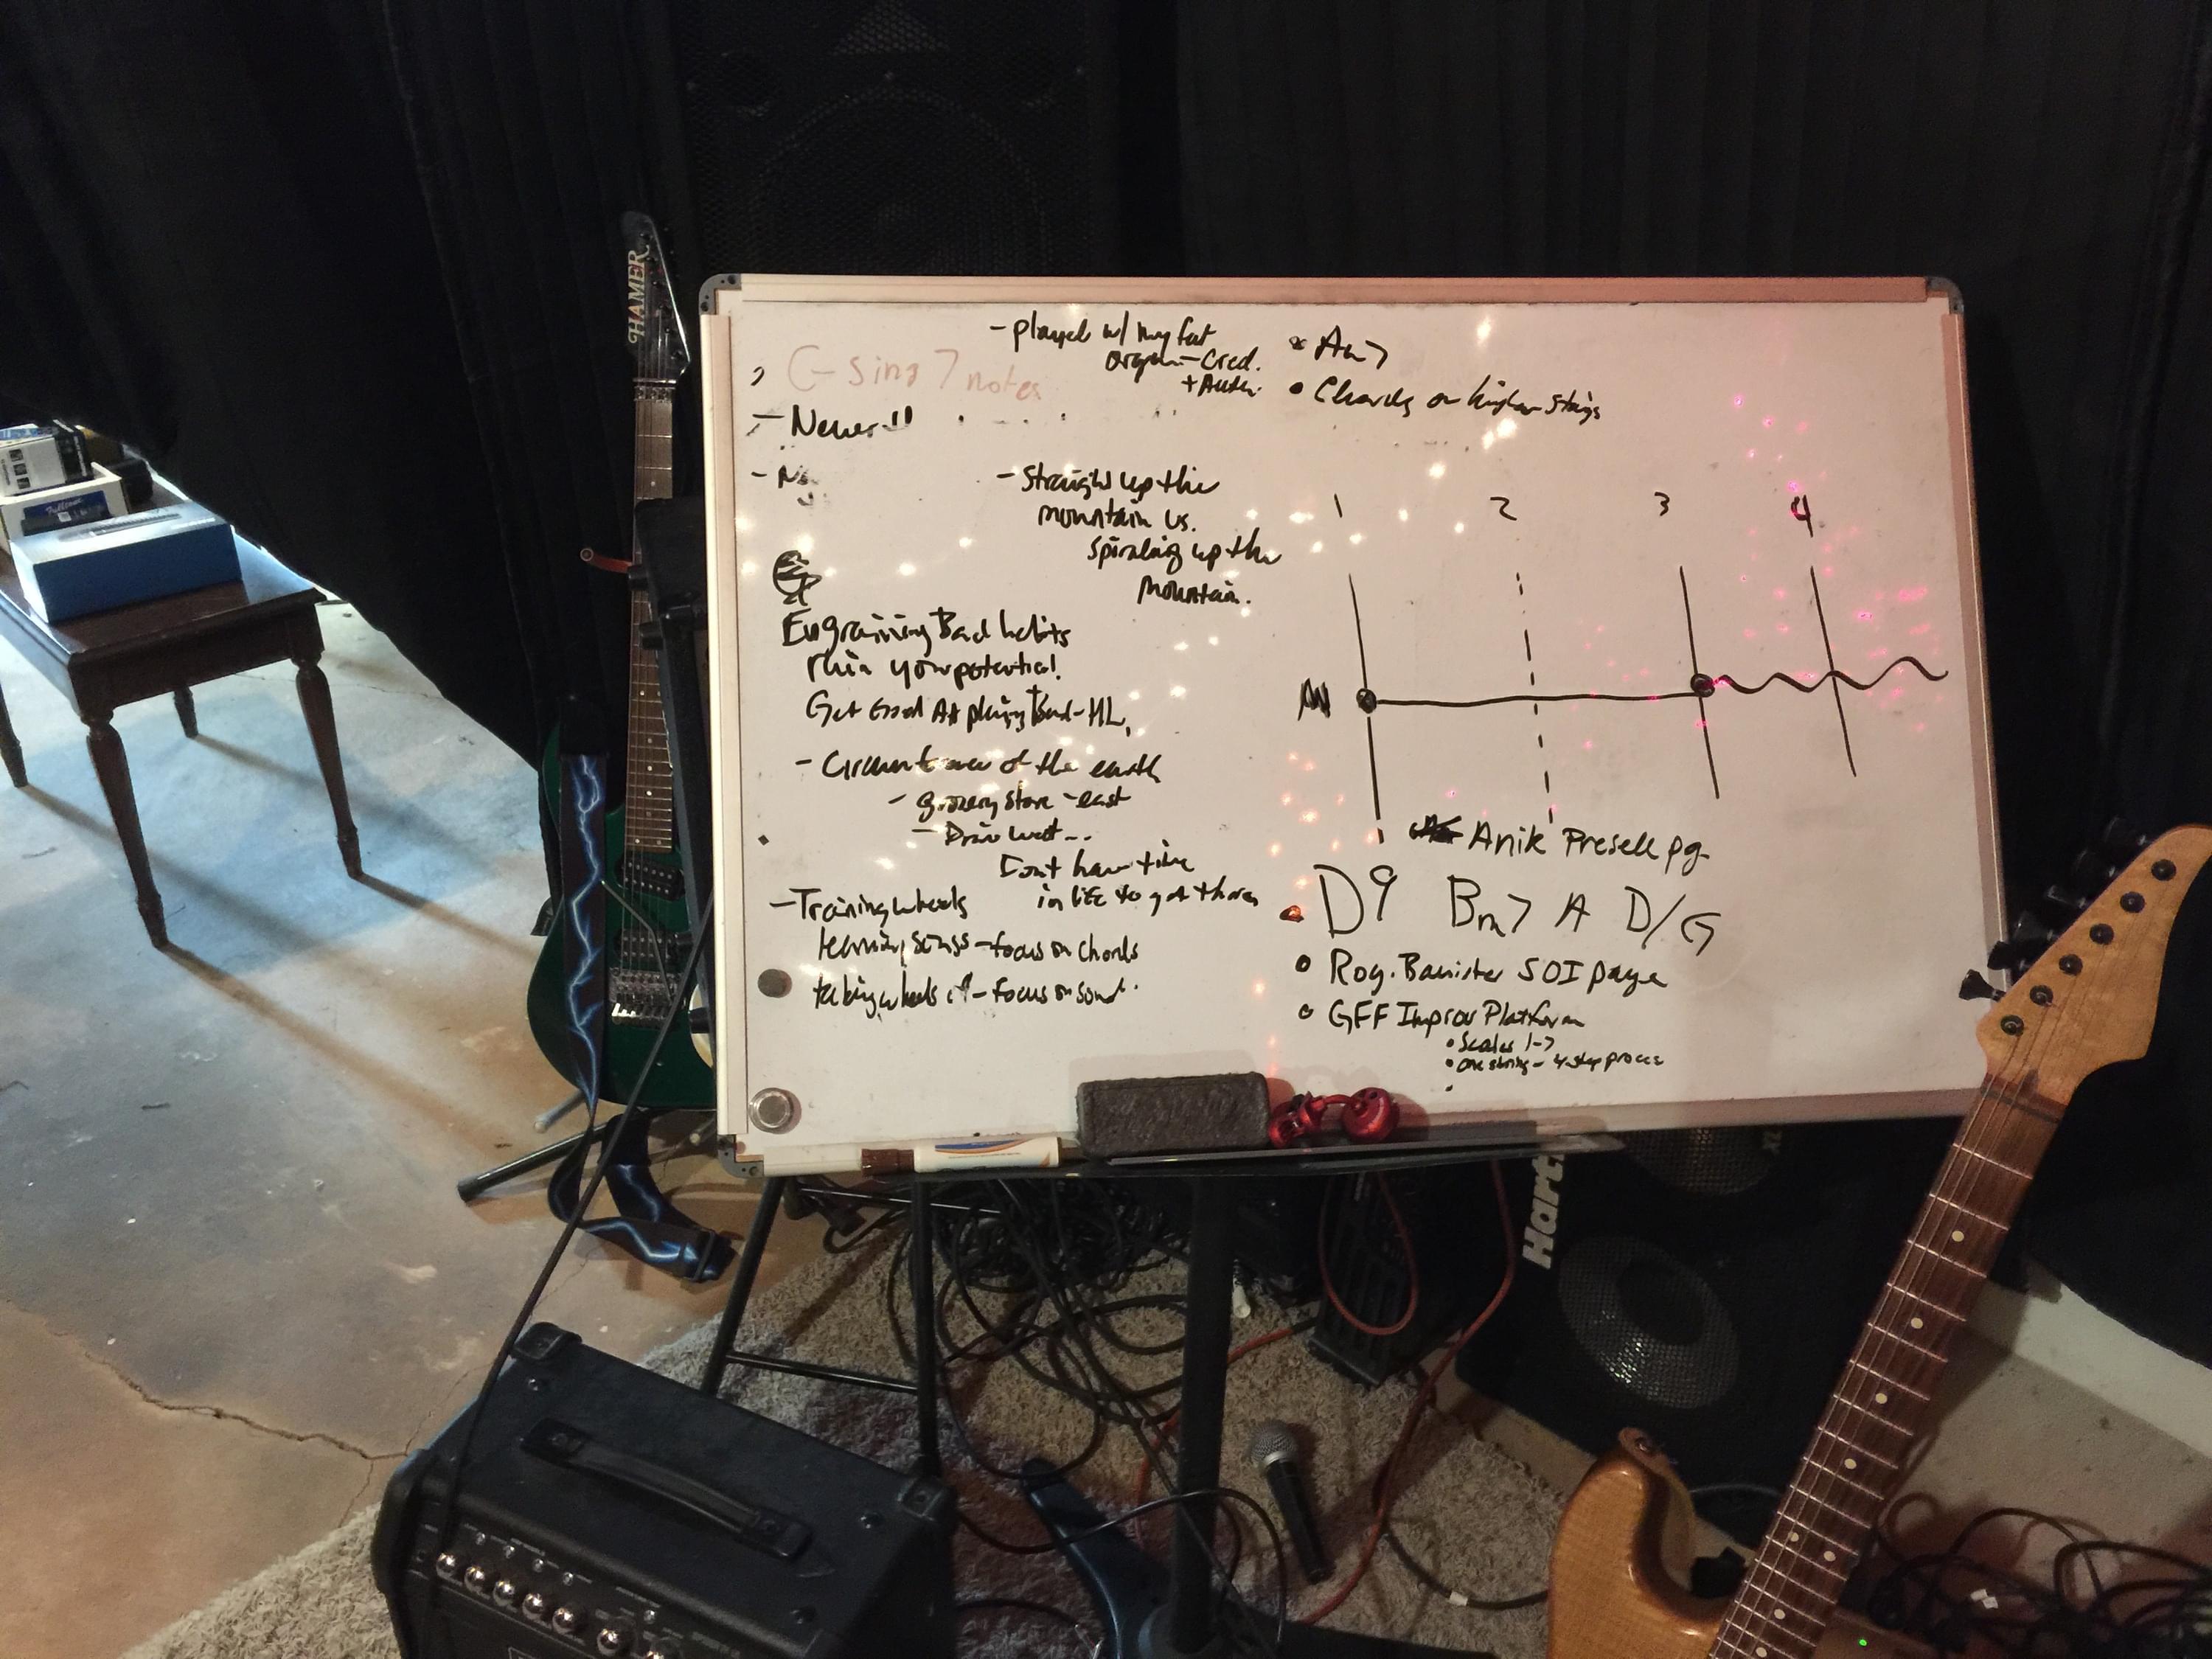 HAMER
- played w/ my fat
organ - Cred.
+ Auth.
G - sing 7 notes
- Never!!
- Straight up the
mountain vs.
spiraling up the
mountain.
Engraining Bad habits
ruin your potential!
Get Good At playing Bad - HL,
- Circumference of the earth
- grocery store - east
- Drive west...
Don't have time
in life to get there
- Training wheels
learning songs - focus on chords
taking wheels off - focus on sound.
• Am7
• Chords on higher strings
1 2 3 4
Anik Presell pg.
• D9 Bm7 A D/G
• Rog. Banister SOI page
• GFF Improv Platform
• Scales 1-7
• one string - 4 step process
Hart